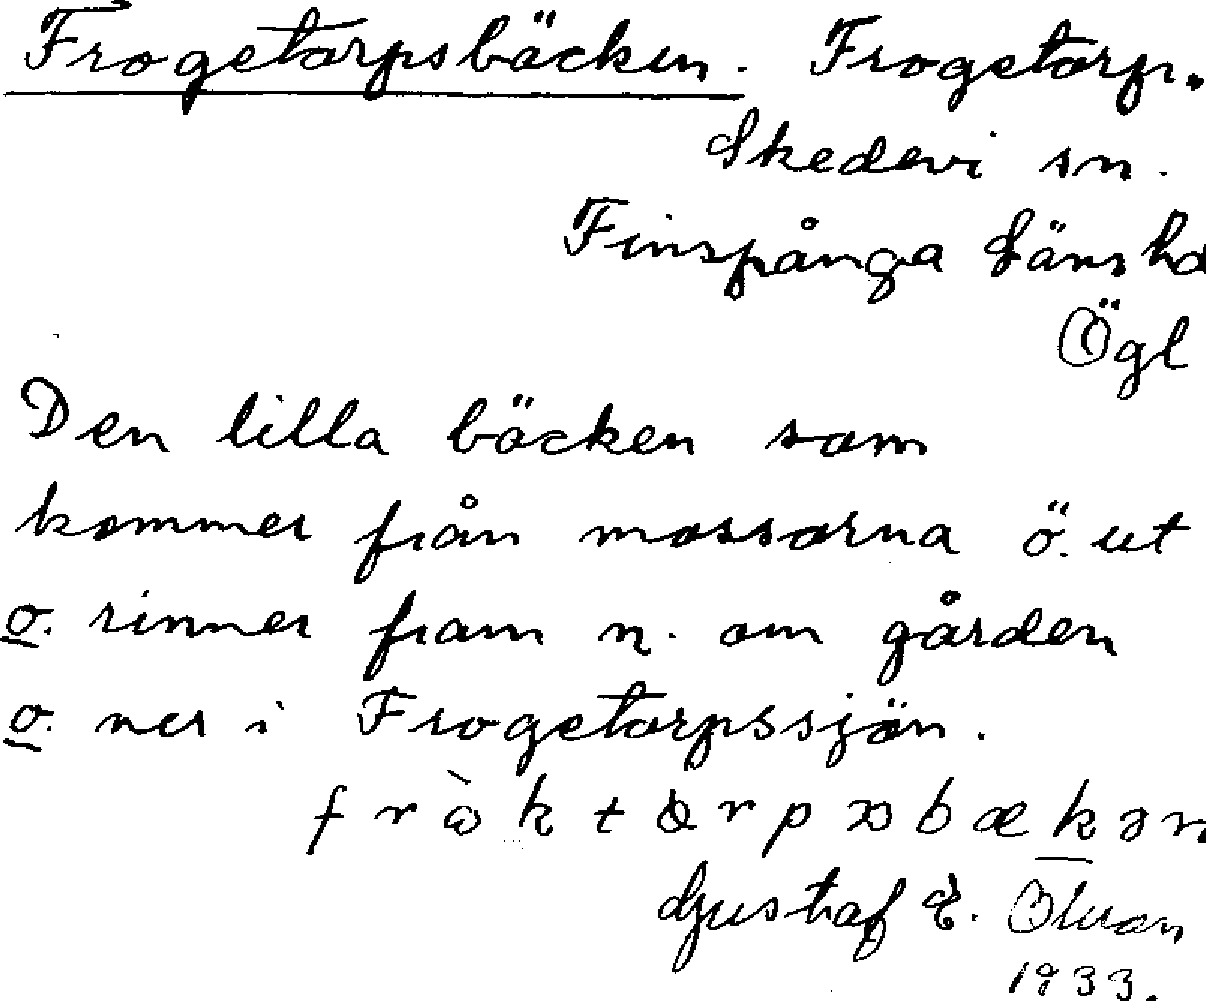 Frogetorpsbäcken. Frogetorp.
Skedevi sn.
Finspånga läns hd
Ögl
Den lilla bäcken som
kommer från mossarna ö. ut
o. rinner fram n. om gården
o. ner i Frogetorpssjön.
Gustaf E.
1933.